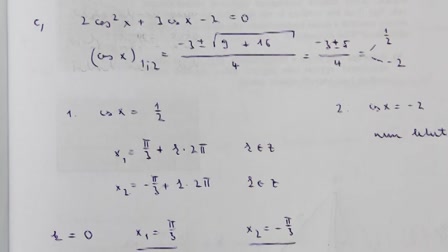 c, 2 cos²x + 3 cos x - 2 = 0
(cos x)₁,₂ = (-3 ± √(9 + 16)) / 4 = (-3 ± 5) / 4 = 1/2, -2
1. cos x = 1/2 2. cos x = -2
x₁ = π/3 + k · 2π k ∈ Z
x₂ = -π/3 + k · 2π k ∈ Z
k = 0 x₁ = π/3 x₂ = -π/3